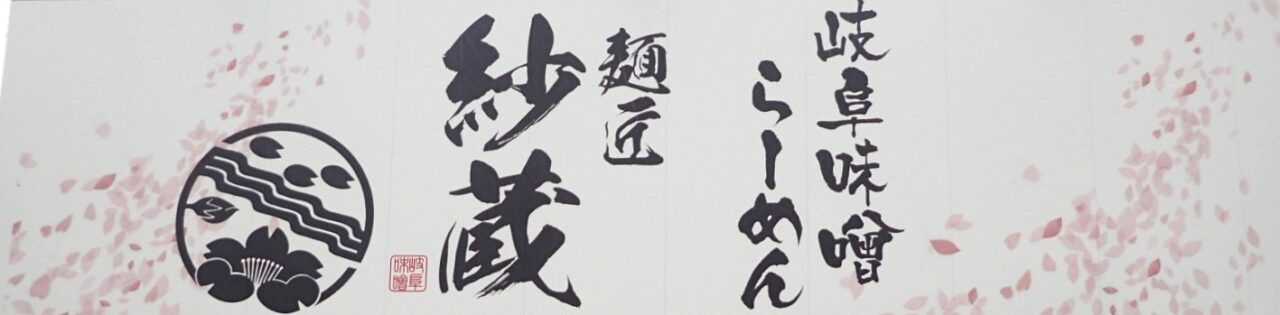 岐阜味噌
らーめん
麺匠
紗蔵
岐阜
味噌